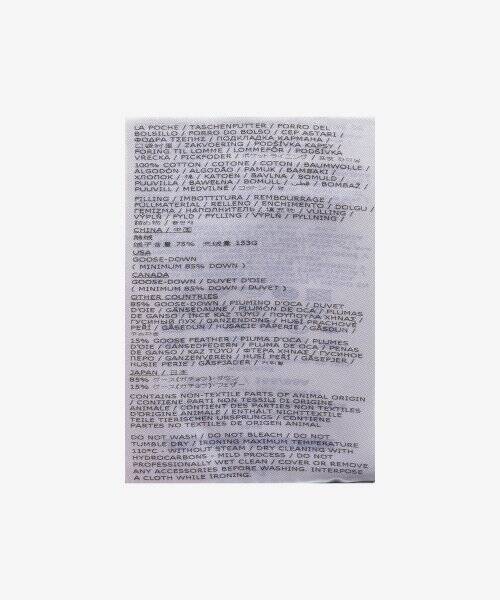 LA POCHE / TASCHENFUTTER / FORRO DEL
BOLSILLO / FORRO DO BOLSO / CEP ASTARI /
ΦΟΔΡΑ ΤΣΕΠΗΣ / ПОДКЛАДКА КАРМАНА /
ZAKVOERING / PODŠÍVKA KAPSY /
FORING TIL LOMME / LOMMEFÔR / PODŠÍVKA
VRECKA / PICKFODER / ポケットライニング /
100% COTTON / COTONE / COTON / BAUMWOLLE /
ALGODÓN / ALGODÃO / PAMUK / BAMBAKI /
ХЛОПОК / 棉 / KATOEN / BAVLNA / BOMULD /
PUUVILLA / BAWEŁNA / BOMULL / قطن / BOMBAŽ /
PUUVILL / MEDVILNĖ / コットン / 면
FILLING / IMBOTTITURA / REMBOURRAGE /
FÜLLMATERIAL / RELLENO / ENCHIMENTO / DOLGU /
ΓΕΜΙΣΜΑ / НАПОЛНИТЕЛЬ / 填充物 / VULLING /
VÝPLŇ / FYLD / FYLLING / VÝPLŇ / FYLLNING /
詰め物 / 충전재
CHINA / 中国
鹅绒
绒子含量 75% 充绒量 153G
USA
GOOSE-DOWN
( MINIMUM 85% DOWN )
CANADA
GOOSE-DOWN / DUVET D'OIE
( MINIMUM 85% DOWN / DUVET )
OTHER COUNTRIES
85% GOOSE-DOWN / PIUMINO D'OCA / DUVET
D'OIE / GÄNSEDAUNE / PLUMÓN DE OCA / PLUMAS
DE GANSO / İNCE KAZ TÜYÜ / ΠΟΥΠΟΥΛΑ ΧΗΝΑΣ /
ГУСИНЫЙ ПУХ / GANZENDONS / HUSÍ PRACHOVÉ
PEŘÍ / GÅSEDUN / HUSACIE PÁPERIE / GÅSDUN /
15% GOOSE FEATHER / PIUMA D'OCA / PLUMES
D'OIE / GÄNSEDFEDERN / PLUMA DE OCA / PENAS
DE GANSO / KAZ TÜYÜ / ΦΤΕΡΑ ΧΗΝΑΣ / ГУСИНОЕ
ПЕРО / GANZENVEREN / HUSÍ PEŘÍ / GÅSEFJER /
HUSIE PERIE / GÅSFJÄDER /
JAPAN / 日本
85% グース(ガチョウ)・ダウン
15% グース(ガチョウ)・フェザー
CONTAINS NON-TEXTILE PARTS OF ANIMAL ORIGIN
/ CONTIENE PARTI NON TESSILI DI ORIGINE
ANIMALE / CONTIENT DES PARTIES NON TEXTILES
D'ORIGINE ANIMALE / ENTHÄLT NICHTTEXTILE
TEILE TIERISCHEN URSPRUNGS / CONTIENE
PARTES NO TEXTILES DE ORIGEN ANIMAL
DO NOT WASH / DO NOT BLEACH / DO NOT
TUMBLE DRY / IRONING MAXIMUM TEMPERATURE
110°C - WITHOUT STEAM / DRY CLEANING WITH
HYDROCARBONS - MILD PROCESS / DO NOT
PROFESSIONALLY WET CLEAN / COVER OR REMOVE
ANY ACCESSORIES BEFORE WASHING. INTERPOSE
A CLOTH WHILE IRONING.